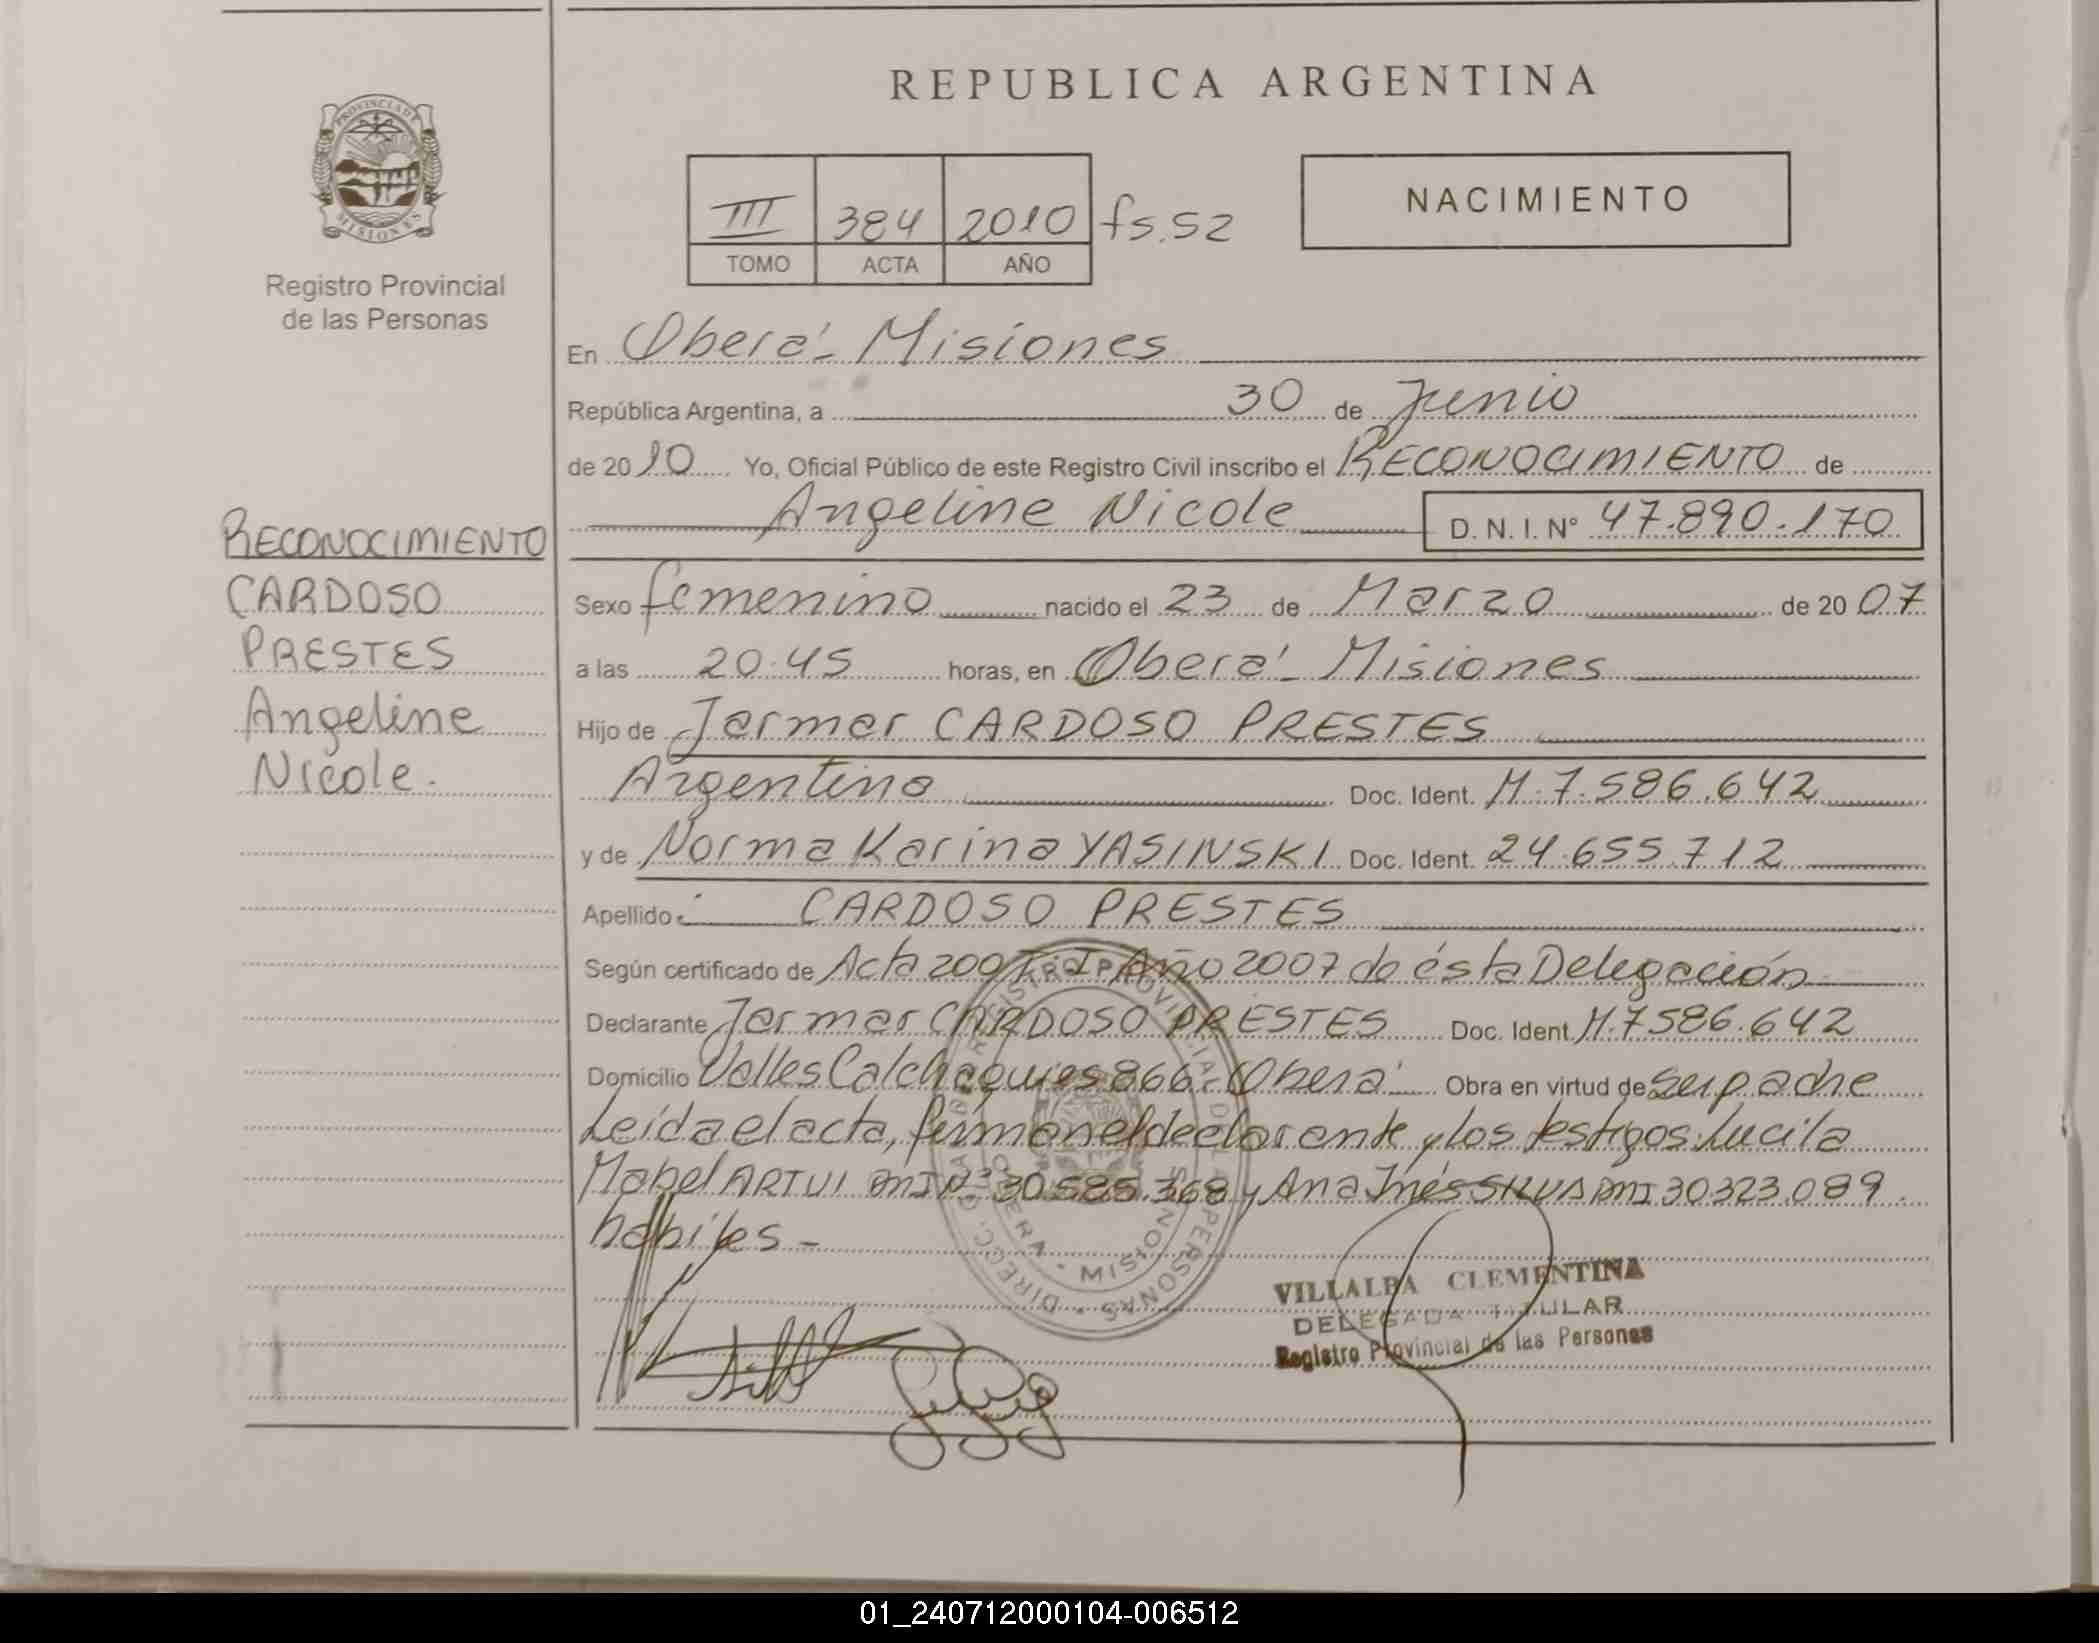 REPUBLICA ARGENTINA
PROVINCIA DE
MISIONES
Registro Provincial
de las Personas
III 384 2010 fs.52
TOMO ACTA AÑO
NACIMIENTO
En Oberá - Misiones
República Argentina, a 30 de Junio
de 2010 Yo, Oficial Público de este Registro Civil inscribo el RECONOCIMIENTO de
Angeline Nicole D. N. I. N° 47.890.170
RECONOCIMIENTO
CARDOSO
PRESTES
Angeline
Nicole.
Sexo femenino nacido el 23 de Marzo de 2007
a las 20.45 horas, en Oberá - Misiones
Hijo de Jarmar CARDOSO PRESTES
Argentino Doc. Ident. M.7.586.642
y de Norma Karina YASINSKI Doc. Ident. 24.655.712
Apellido: CARDOSO PRESTES
Según certificado de Acta 200 T. I Año 2007 de ésta Delegación
Declarante Jarmar CARDOSO PRESTES Doc. Ident. M.7586.642
Domicilio Valles Calchaquies 866 - Oberá Obra en virtud de ser padre
Leída el acta, firman el declarante y los testigos: Lucila
Mabel ARTUI DNI Nº 30.585.368 y Ana Inés SILVA DNI 30323.089
habiles -
DIRECC. REGISTRO PROVINCIAL DE LAS PERSONAS
OBERA - MISIONES
VILLALBA CLEMENTINA
DELEGADA TITULAR
Registro Provincial de las Personas
01_240712000104-006512